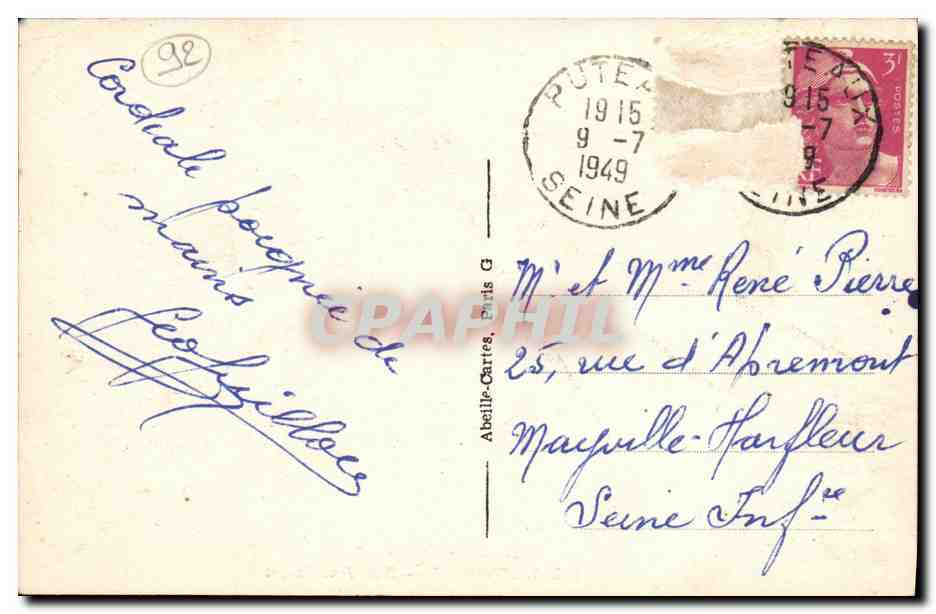 92
Cordiale poignée de
mains
PUTEA
19 15
9 -7
1949
SEINE
TEAUX
9 15
-7
9
EINE
3F
POSTES
Mr et Mme René Pierre
25, rue d'Apremont
Mayville-Harfleur
Seine Infre
Abeille-Cartes, Paris G
CPAPHIL